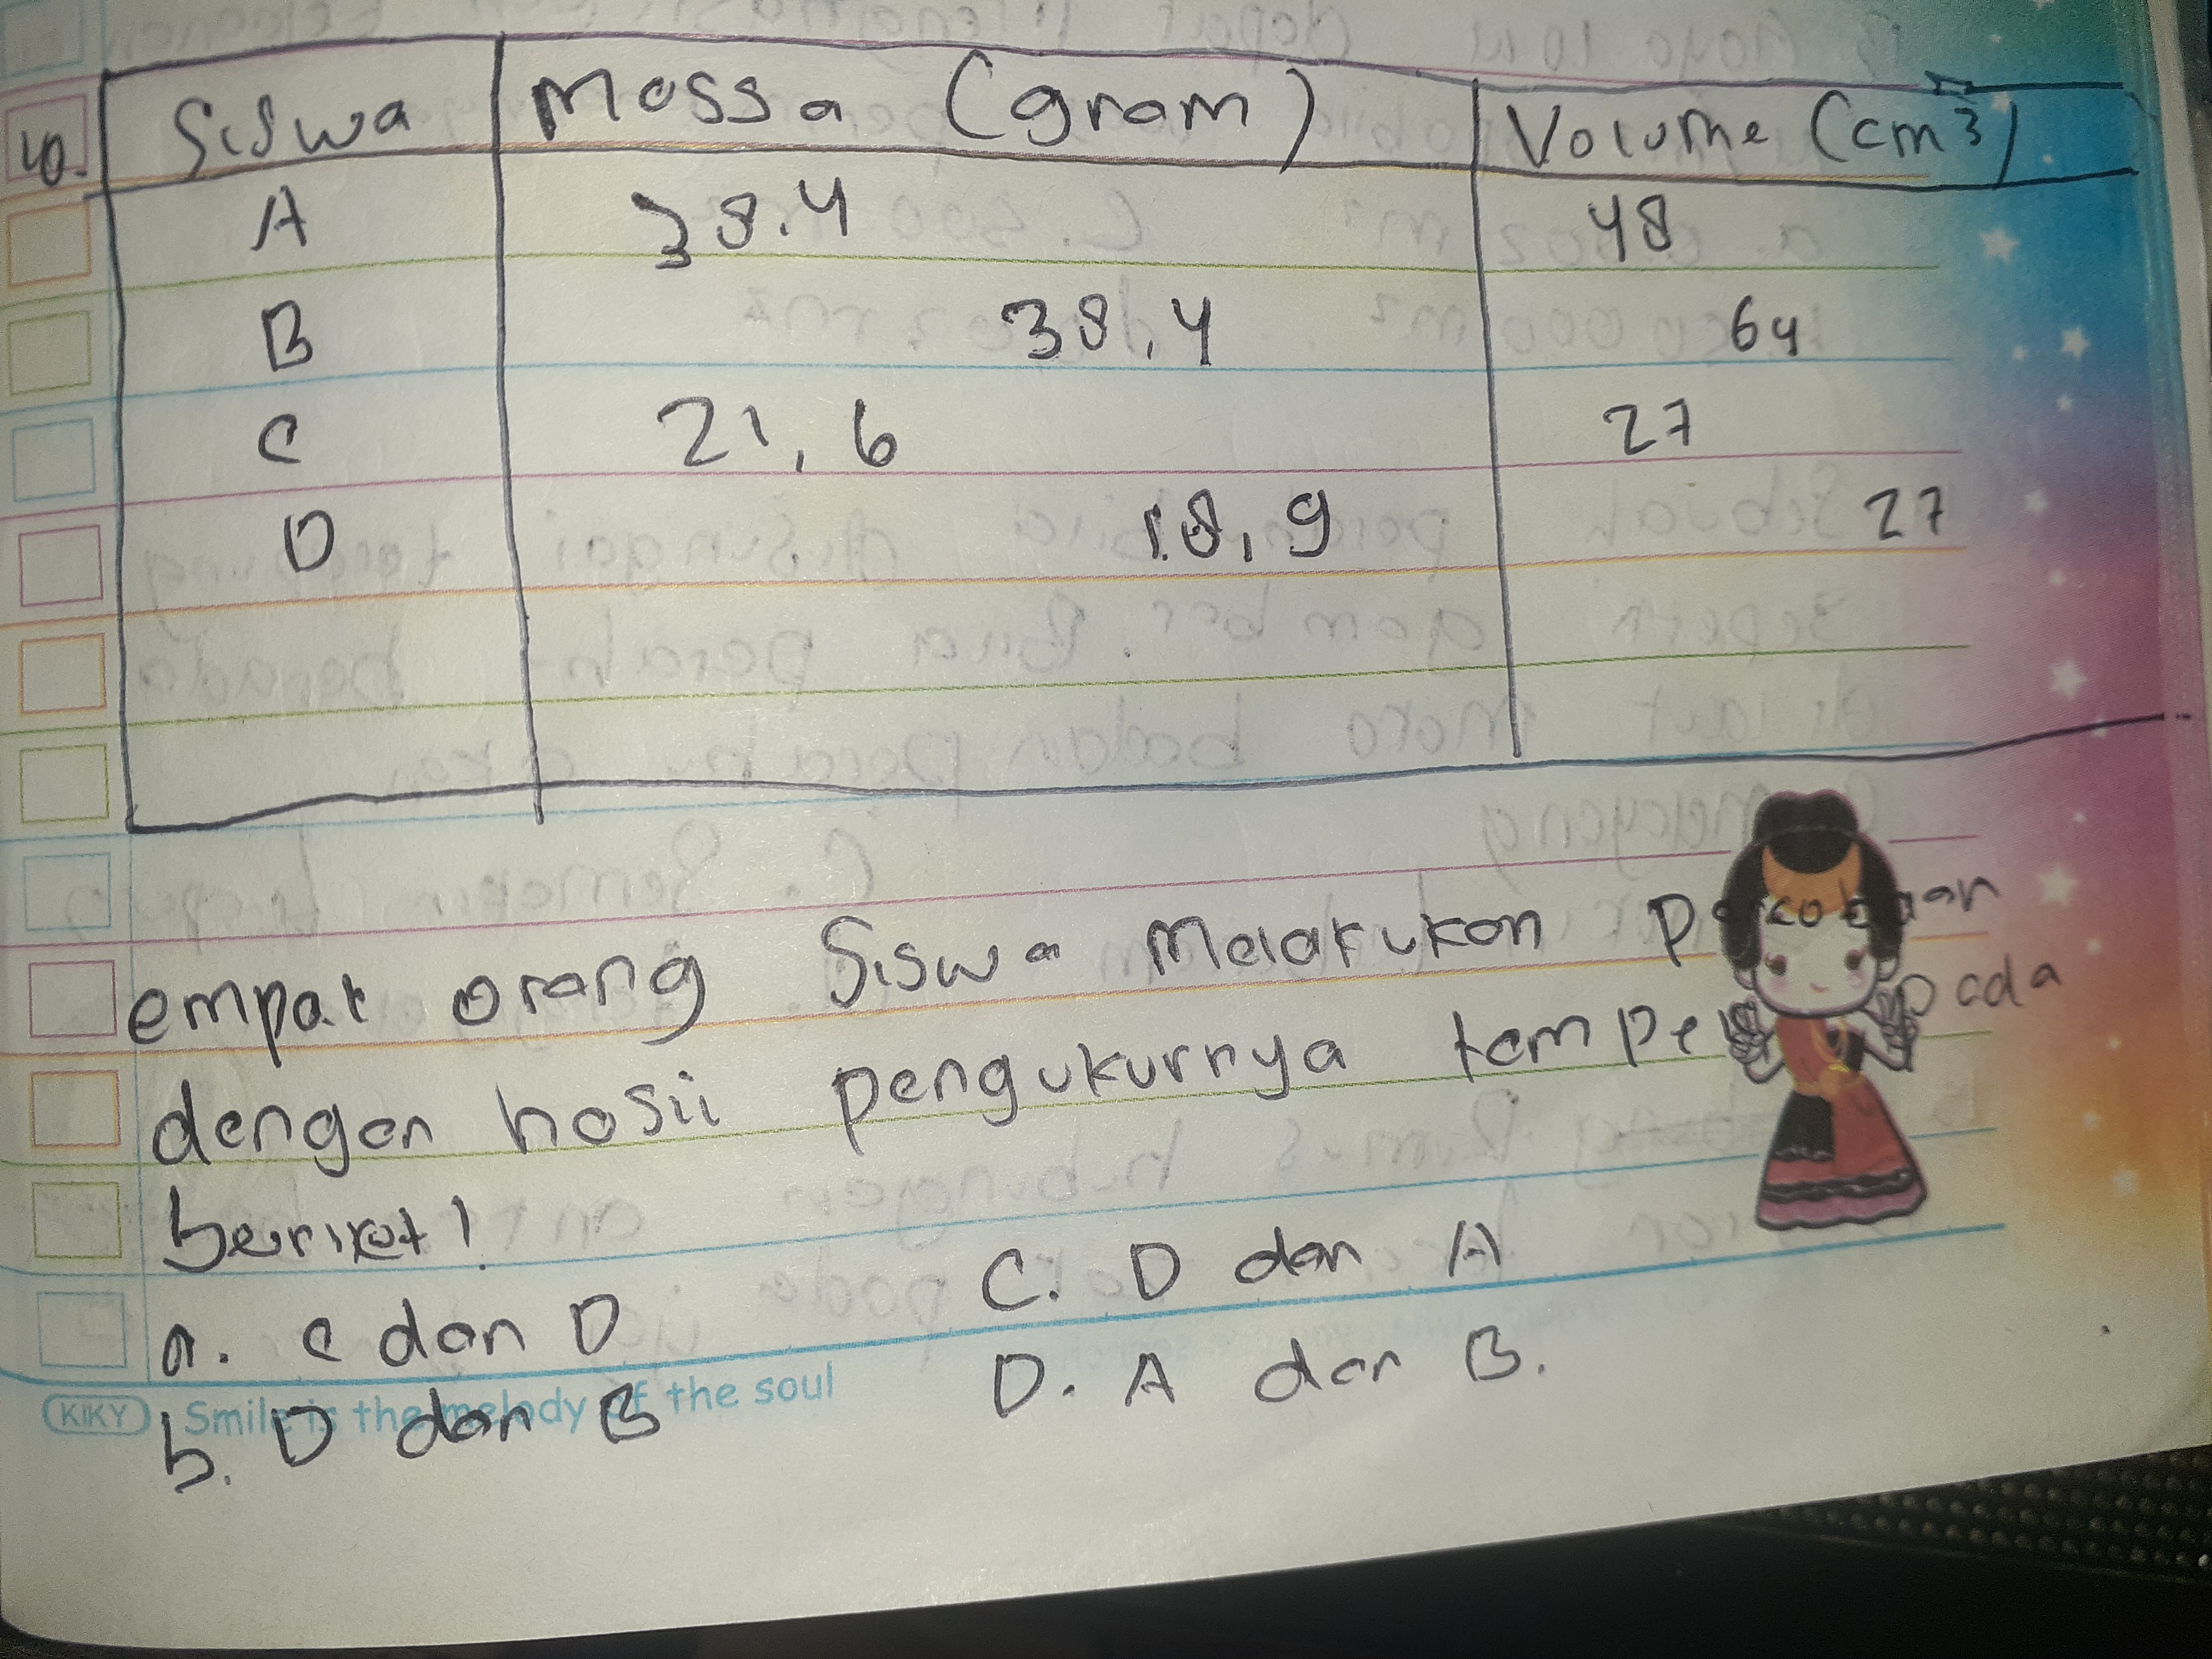 40. Siswa Massa (gram) Volume (cm³)
A 38.4 48
B 38,4 64
C 21,6 27
D 18,9 27
empat orang Siswa Melakukan Percobaan
dengan hasil pengukurnya tempel pada
berikut!
a. C dan D C. D dan A
b. D dan B D. A dan B.
KIKY Smile is the melody of the soul